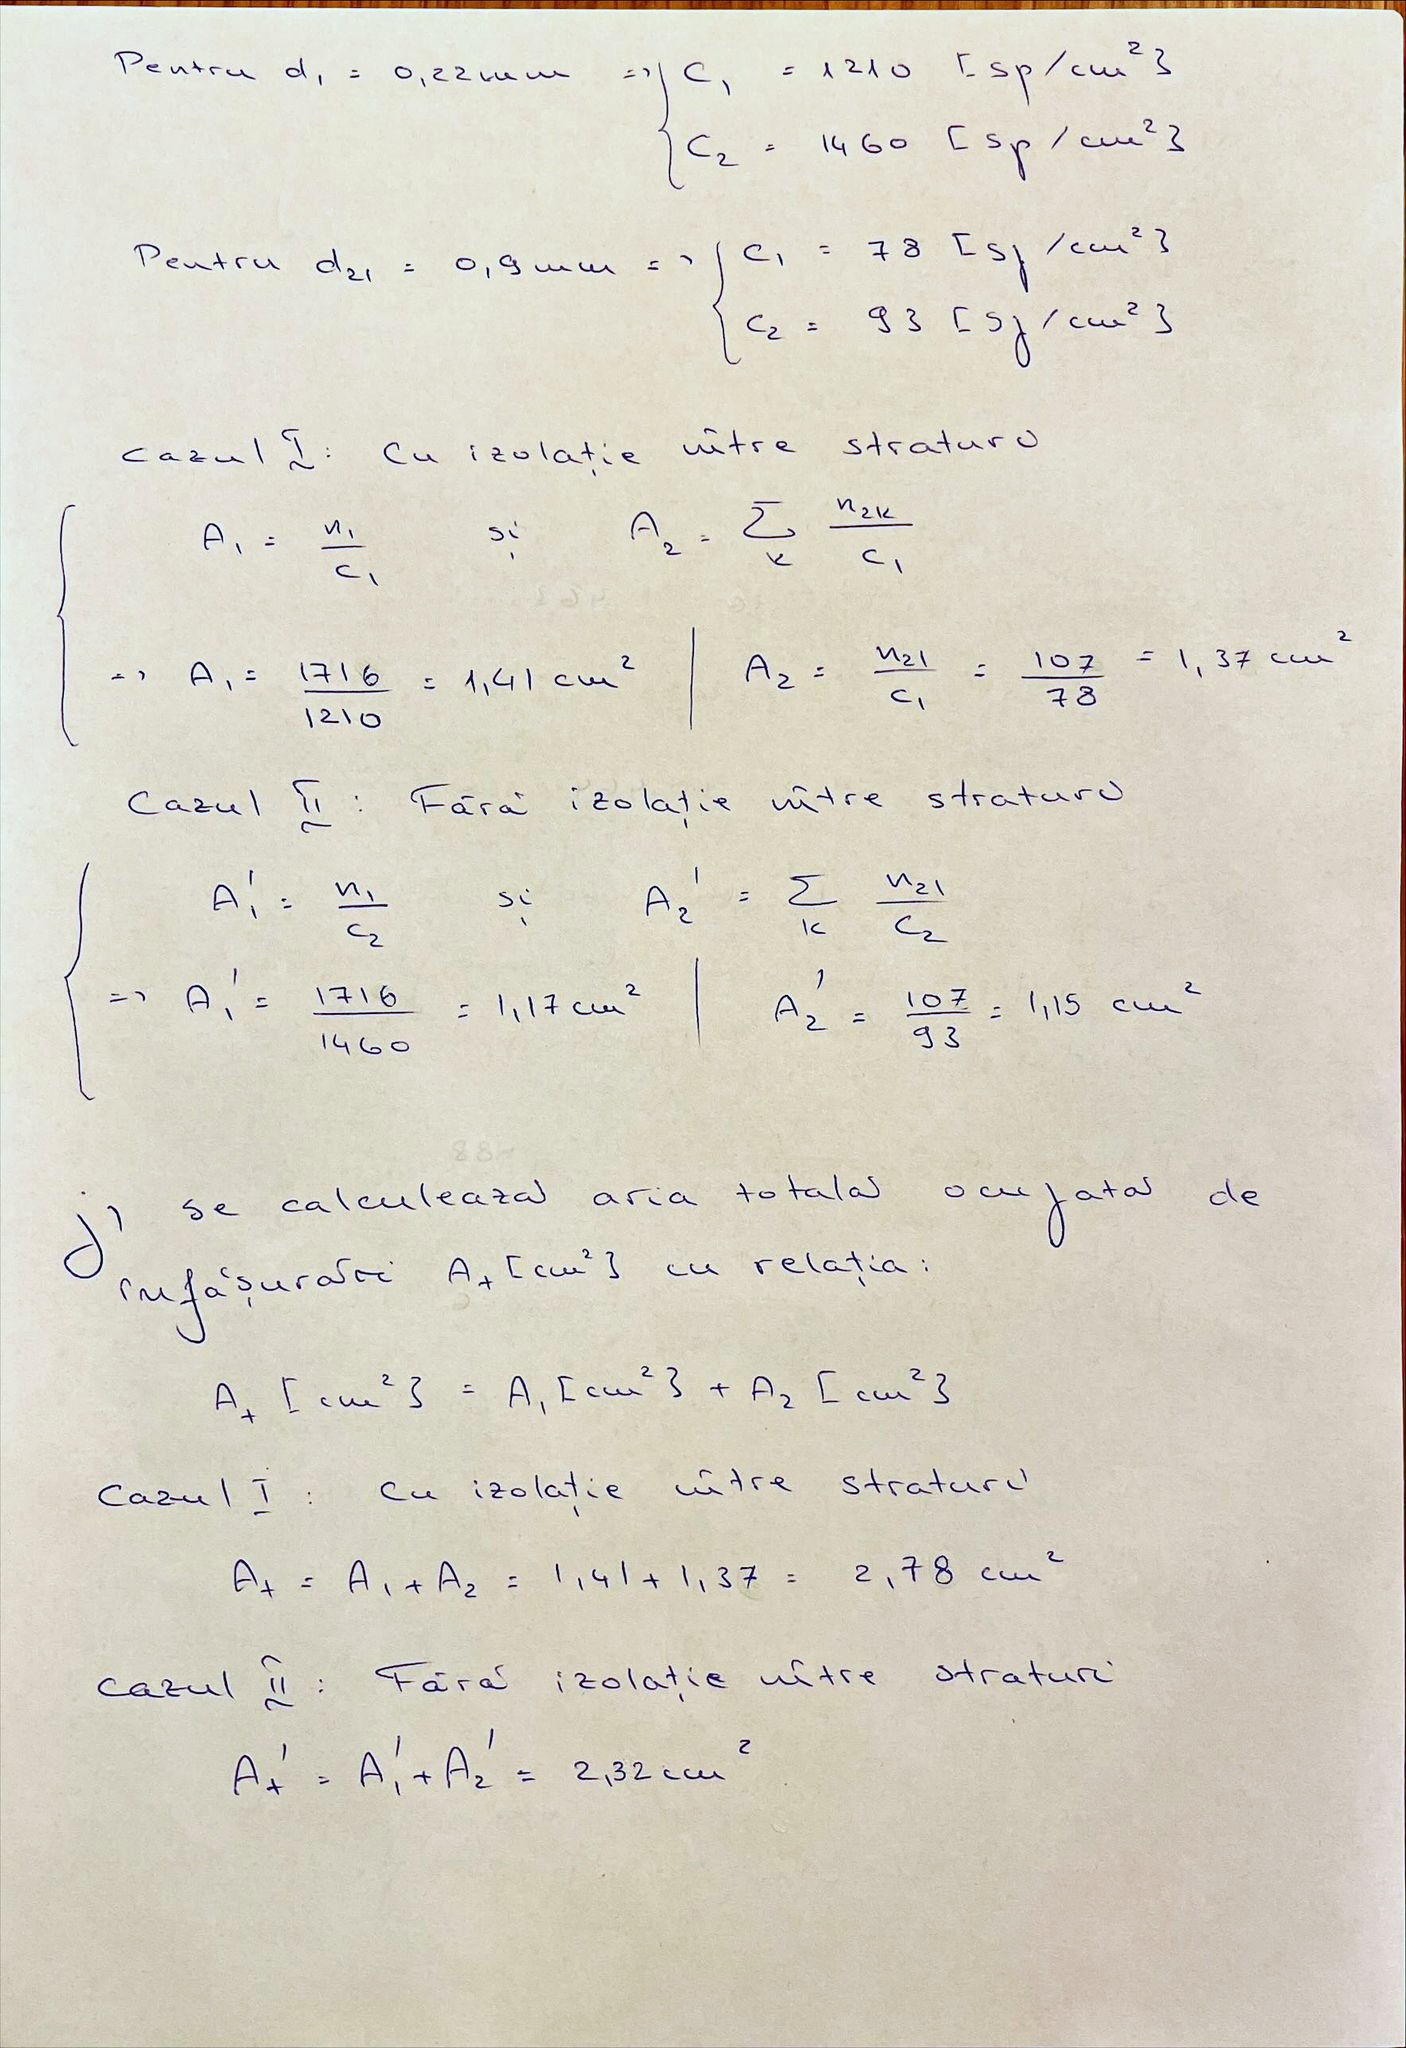 Pentru d₁ = 0,22mm => { C₁ = 1210 [sp/cm²]
C₂ = 1460 [sp/cm²]
Pentru d₂₁ = 0,9mm => { C₁ = 78 [sp/cm²]
C₂ = 93 [sp/cm²]
Cazul I: Cu izolație între straturi
A₁ = n₁/C₁ și A₂ = Σₖ n₂ₖ/C₁
=> A₁ = 1716/1210 = 1,41 cm² | A₂ = n₂₁/C₁ = 107/78 = 1,37 cm²
Cazul II: Fără izolație între straturi
A₁' = n₁/C₂ și A₂' = Σₖ n₂₁/C₂
=> A₁' = 1716/1460 = 1,17 cm² | A₂' = 107/93 = 1,15 cm²
j) se calculează aria totală ocupată de
înfășurări Aₜ [cm²] cu relația:
Aₜ [cm²] = A₁ [cm²] + A₂ [cm²]
Cazul I: cu izolație între straturi
Aₜ = A₁ + A₂ = 1,41 + 1,37 = 2,78 cm²
Cazul II: Fără izolație între straturi
Aₜ' = A₁' + A₂' = 2,32 cm²